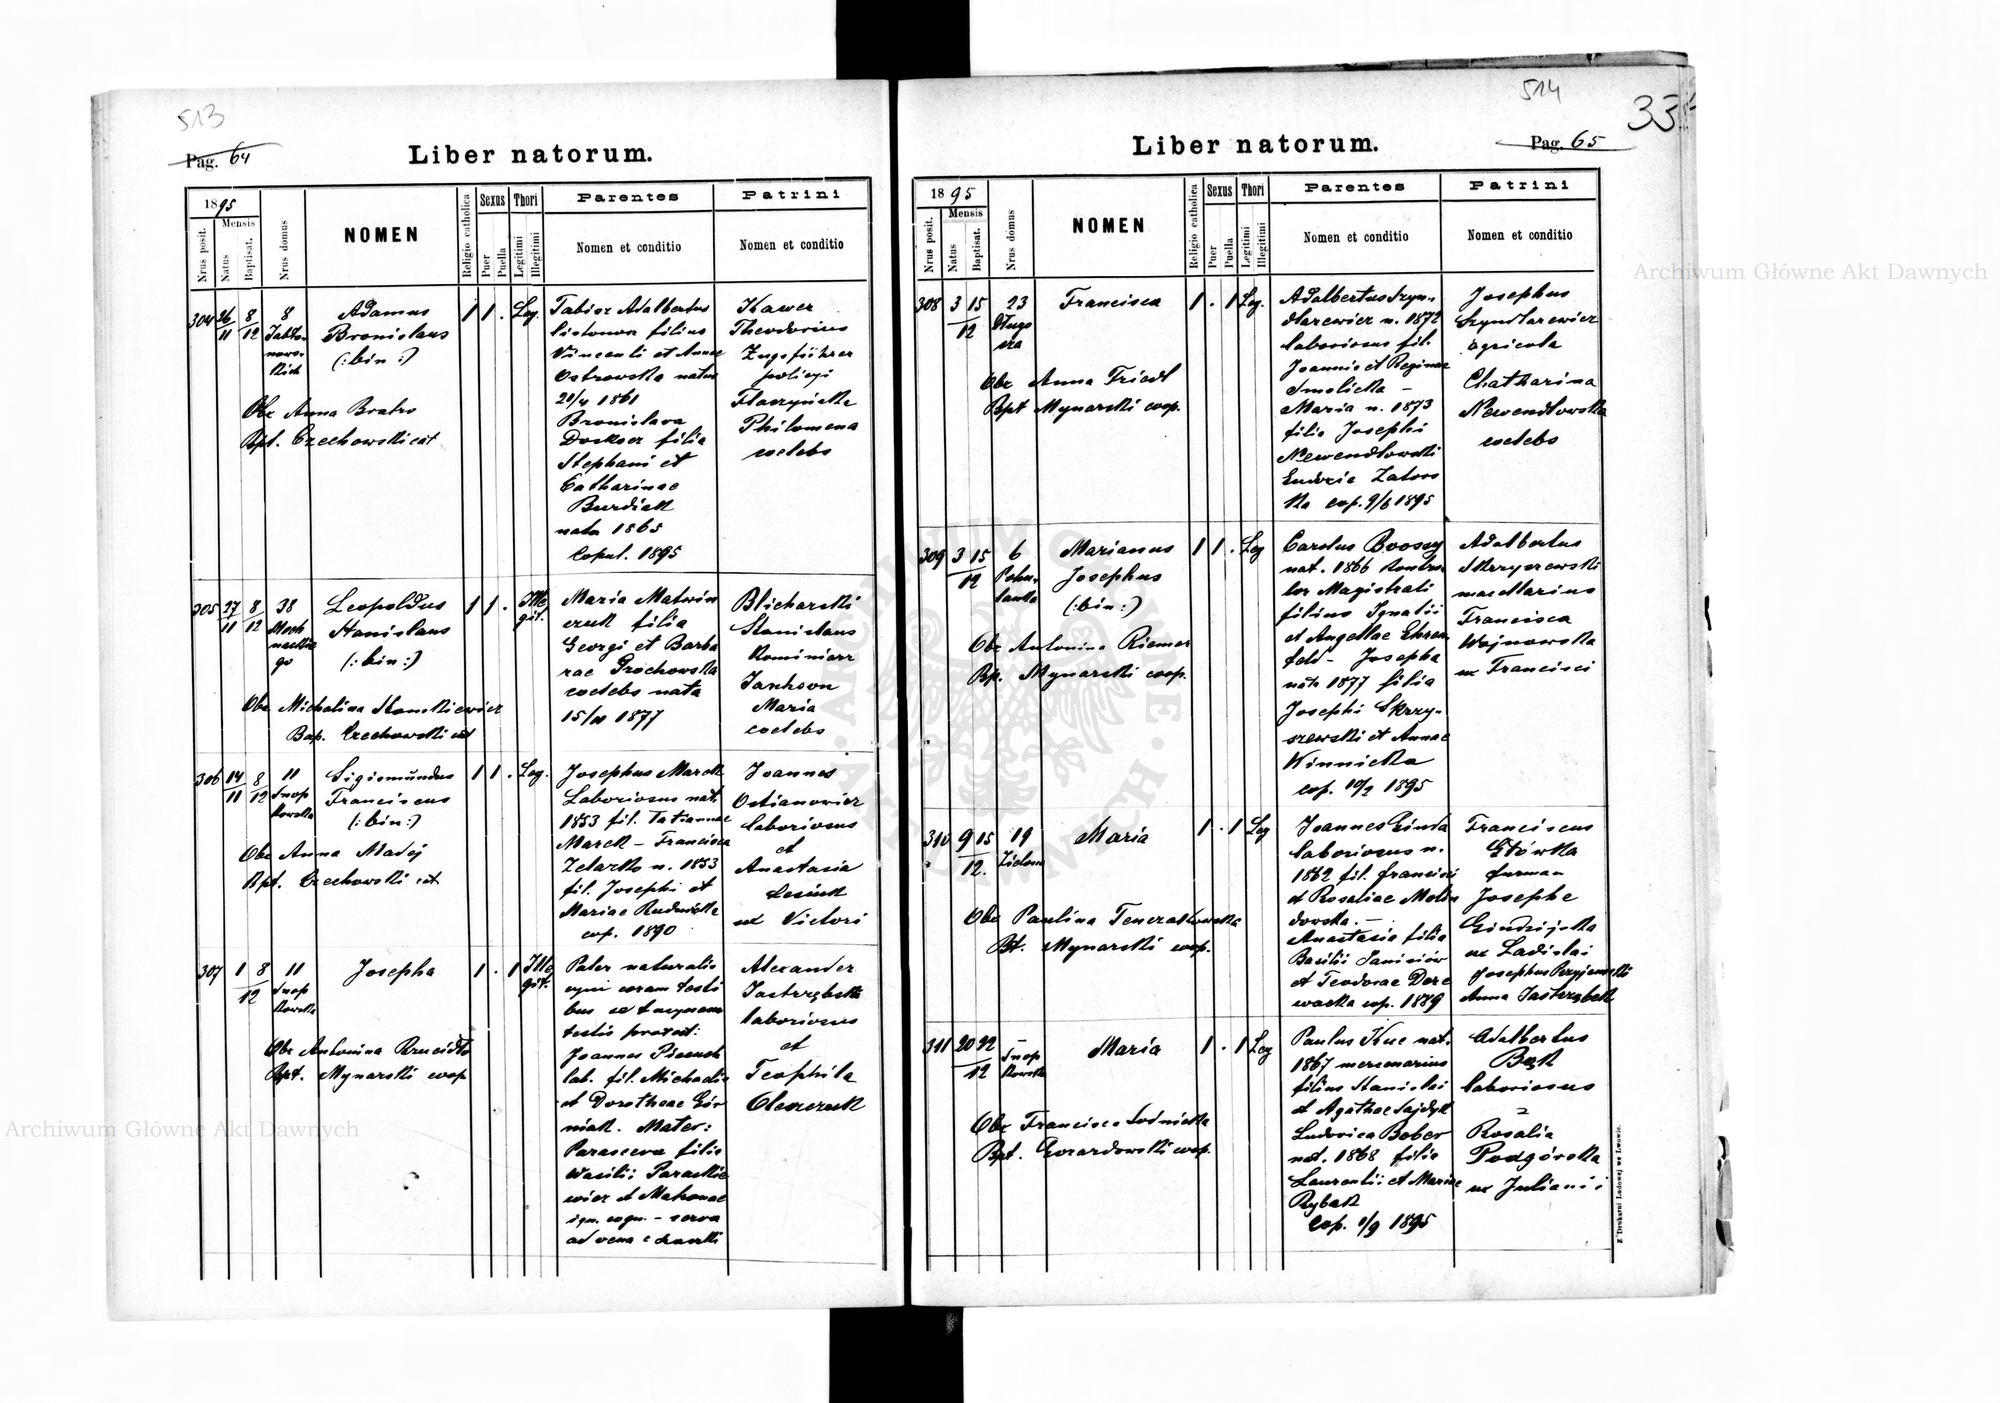 513
Pag. 64
Liber natorum.
1895
Mensis
Nrus posit.
Natus
Baptisat.
Nrus domus
NOMEN
Religio catholica
Sexus
Puer
Puella
Thori
Legitimi
Illegitimi
Parentes
Nomen et conditio
Patrini
Nomen et conditio
304 26/11 8/12 8
Adamus
Bronislaus
(: bin :)
1 1 . Leg.
Obs. Anna Bratro
Bpt. Czechowski cat
Tabisz Adalbertus
filius
Vincenti et Annae
Ostrowska natus
1861
Bronislava
filia
Stephani et
Catharinae
Burdiak
nata 1865
Copul. 1895
Xawer
Theodorius
Zugsführer
policyi
Flaczyńska
Philomena
coelebs
305 27/11 8/12 38
Moch
nackie
go
Leopoldus
Stanislaus
(: bin :)
1 1 . Ille
git.
Obs. Michalina Stankiewicz
Bap. Czechowski cat
Maria Matwin
czuk filia
Georgi et Barba
rae Prochowska
coelebs nata
1877
Blicharski
Stanislaus
Kominiarz
Jankson
Maria
coelebs
306 14/11 8/12 11
Snop
kowska
Sigismundus
Franciscus
(: bin :)
1 1 . Leg.
Obs. Anna Madej
Bpt. Czechowski cat
Josephus Marek
Laboriosus nat.
1853 fil. Tatiannae
Marek – Francisca
Zelasko n. 1853
fil. Josephi et
Mariae Rudnicka
cop. 1890
Joannes
Ostianowicz
laboriosus
et
Anastasia
ux Victori
307 1 8/12 11
Snop
kowska
Josepha
1 . 1 Ille
git.
Obs. Antonina
Bpt. Mynarski coop
Pater naturalis
coram testi
bus
testis
Joannes
lab. fil. Michaelis
et Dorotheae Gór
niak. Mater:
Parasceva filia
Wasilii Paraskie
wicz et
ign. cogn. – serva
Alexander
Jastrzębski
laboriosus
et
Teophila
Oleszczuk
514
33
Pag. 65
Liber natorum.
1895
Mensis
Nrus posit.
Natus
Baptisat.
Nrus domus
NOMEN
Religio catholica
Sexus
Puer
Puella
Thori
Legitimi
Illegitimi
Parentes
Nomen et conditio
Patrini
Nomen et conditio
308 3 15/12 23
Długo
sza
Francisca
1 . 1 Leg.
Obs Anna Friedl
Bpt Mynarski coop.
Adalbertus Szyn-
dlarewicz n. 1872
laboriosus fil.
Joannis et Reginae
Smolicka –
Maria n. 1873
filia Josephi
Newendlowski
Ludovic
ka cop. 9/6 1895
Josephus
Szyndlarewicz
agricola
Chatharina
Newendlowska
coelebs
309 3 15/12 6
Pohu-
lanka
Marianus
Josephus
(: bin :)
1 1 . Leg
Obs Antonina Riemer
Bp. Mynarski coop.
Carolus
nat. 1866
lor Magistrati
filius Ignatii
et Angellae Ehren
feld – Josepha
nata 1877 filia
Josephi Skrzy-
szewski et Annae
Winnicka
cop. 1895
Adalbertus
Skrzyszewski
macellarius
Francisca
Wojnowska
ux Francisci
310 9 15/12. 19
Zielona
Maria
1 . 1 Leg
Obs Paulina
Bt. Mynarski coop.
Joannes Ginda
laboriosus n.
1862 fil. Francisci
et Rosaliae
dowska. –
Anastasia filia
Basilii
et Teodosae Dere
wacka cop. 1889
Franciscus
Główka
furman
Josephe
ux Ladislai
Josephus
Anna Jastrzębsk
311 20 22/12 –
Snop
kowska
Maria
1 . 1 Leg
Obs Francisca Sośnicka
Bpt. coop.
Paulus Kuc nat.
1867 mercenarius
filius Stanislai
et Agathae Sajdyk
Ludovica Bober
nat. 1868 filia
Laurentii et Mariae
Rybak
Cop. 1/9 1895
Adalbertus
Bąk
laboriosus
Rosalia
Podgórska
ux Juliani
Z Drukarni Ludowej we Lwowie.
Archiwum Główne Akt Dawnych
Archiwum Główne Akt Dawnych